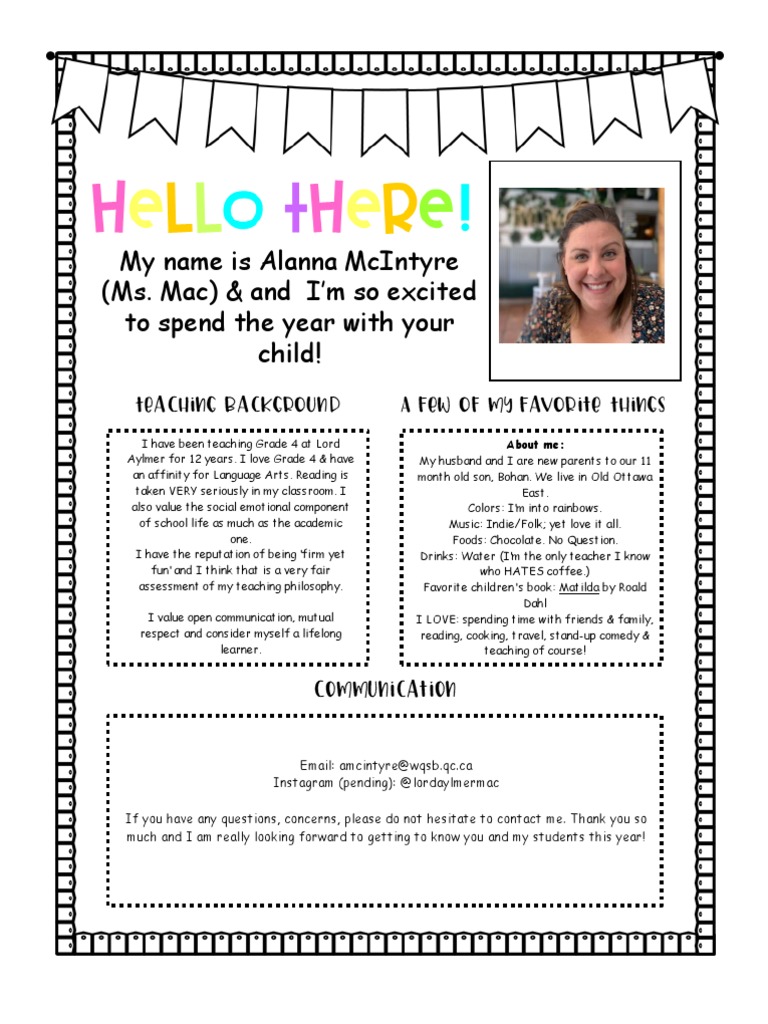 Hello there!
My name is Alanna McIntyre
(Ms. Mac) & and I'm so excited
to spend the year with your
child!
Teaching Background
I have been teaching Grade 4 at Lord
Aylmer for 12 years. I love Grade 4 & have
an affinity for Language Arts. Reading is
taken VERY seriously in my classroom. I
also value the social emotional component
of school life as much as the academic
one.
I have the reputation of being 'firm yet
fun' and I think that is a very fair
assessment of my teaching philosophy.
I value open communication, mutual
respect and consider myself a lifelong
learner.
A few of my favorite things
About me:
My husband and I are new parents to our 11
month old son, Bohan. We live in Old Ottawa
East.
Colors: I'm into rainbows.
Music: Indie/Folk; yet love it all.
Foods: Chocolate. No Question.
Drinks: Water (I'm the only teacher I know
who HATES coffee.)
Favorite children's book: Matilda by Roald
Dahl
I LOVE: spending time with friends & family,
reading, cooking, travel, stand-up comedy &
teaching of course!
Communication
Email: amcintyre@wqsb.qc.ca
Instagram (pending): @lordaylmermac
If you have any questions, concerns, please do not hesitate to contact me. Thank you so
much and I am really looking forward to getting to know you and my students this year!